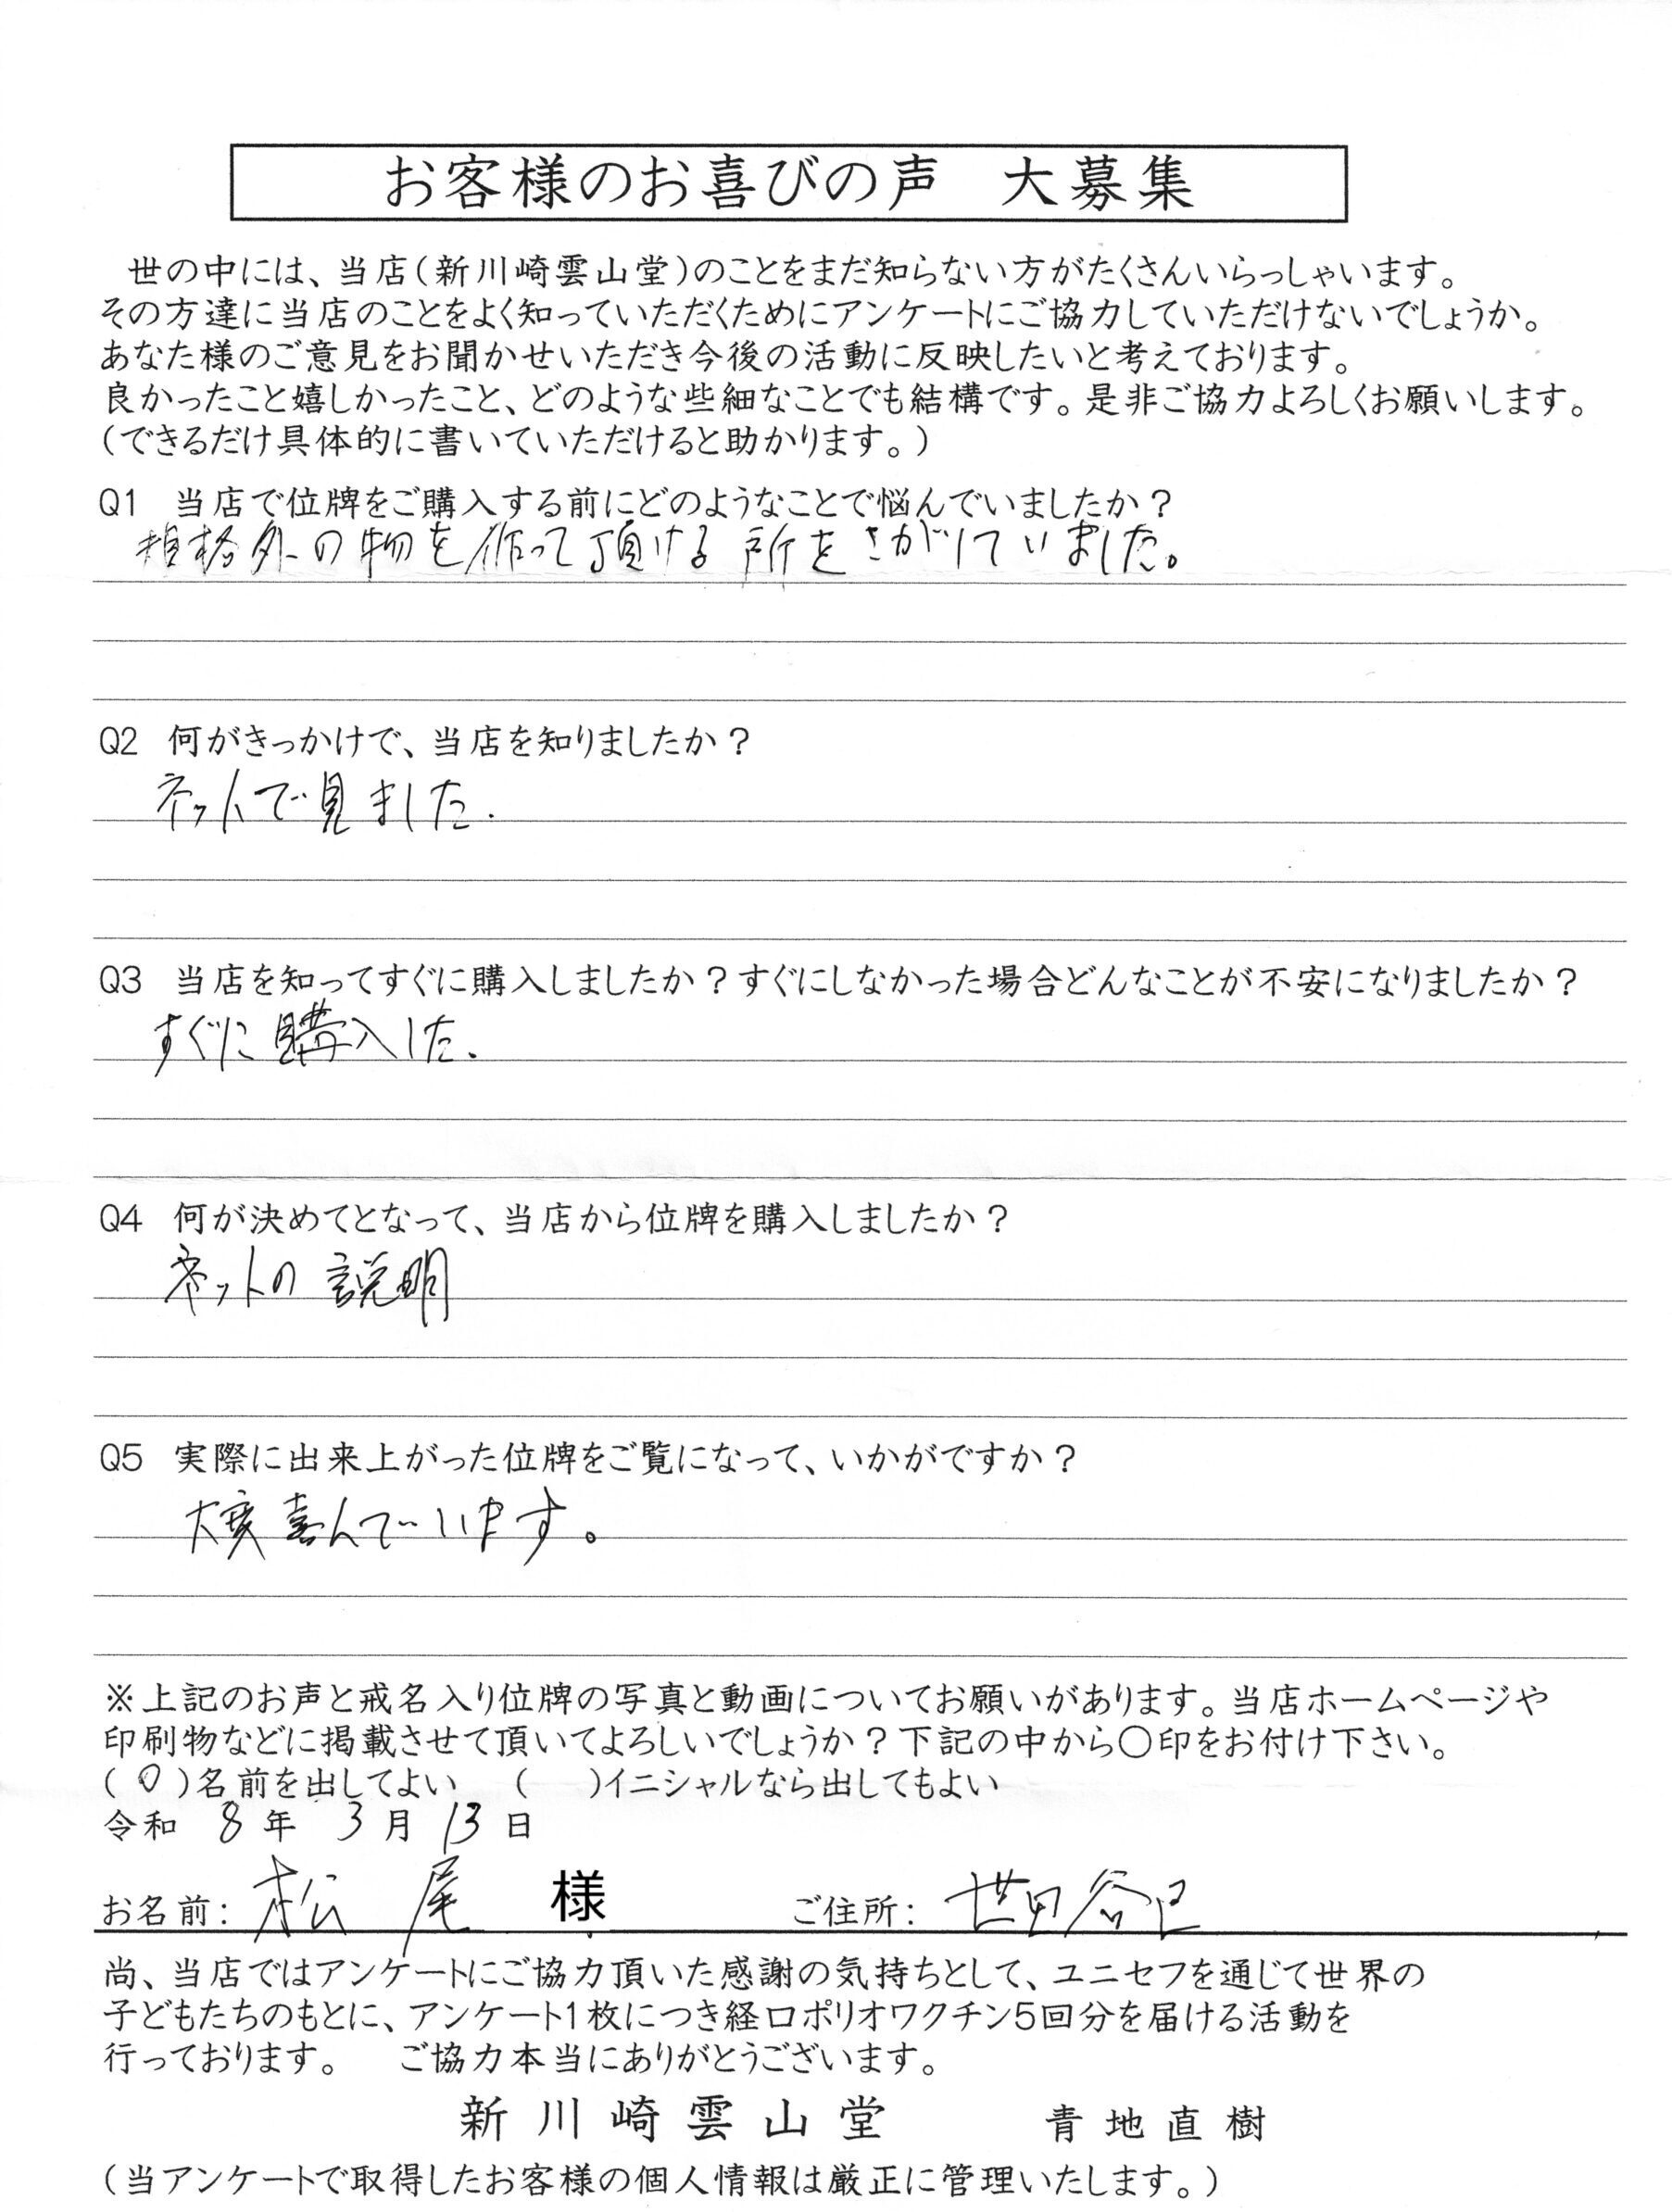 お客様のお喜びの声　大募集
世の中には、当店(新川崎雲山堂)のことをまだ知らない方がたくさんいらっしゃいます。
その方達に当店のことをよく知っていただくためにアンケートにご協力していただけないでしょうか。
あなた様のご意見をお聞かせいただき今後の活動に反映したいと考えております。
良かったこと嬉しかったこと、どのような些細なことでも結構です。是非ご協力よろしくお願いします。
(できるだけ具体的に書いていただけると助かります。)
Q1　当店で位牌をご購入する前にどのようなことで悩んでいましたか?
規格外の物を作って頂ける所をさがしていました。
Q2　何がきっかけで、当店を知りましたか?
ネットで見ました.
Q3　当店を知ってすぐに購入しましたか?すぐにしなかった場合どんなことが不安になりましたか?
すぐに購入した.
Q4　何が決めてとなって、当店から位牌を購入しましたか?
ネットの説明
Q5　実際に出来上がった位牌をご覧になって、いかがですか?
大変喜んでいます。
※上記のお声と戒名入り位牌の写真と動画についてお願いがあります。当店ホームページや
印刷物などに掲載させて頂いてよろしいでしょうか?下記の中から〇印をお付け下さい。
(〇)名前を出してよい　(　)イニシャルなら出してもよい
令和 8 年 3 月 13 日
お名前: 松尾 様　ご住所: 世田谷区
尚、当店ではアンケートにご協力頂いた感謝の気持ちとして、ユニセフを通じて世界の
子どもたちのもとに、アンケート1枚につき経口ポリオワクチン5回分を届ける活動を
行っております。　ご協力本当にありがとうございます。
新川崎雲山堂　青地直樹
(当アンケートで取得したお客様の個人情報は厳正に管理いたします。)